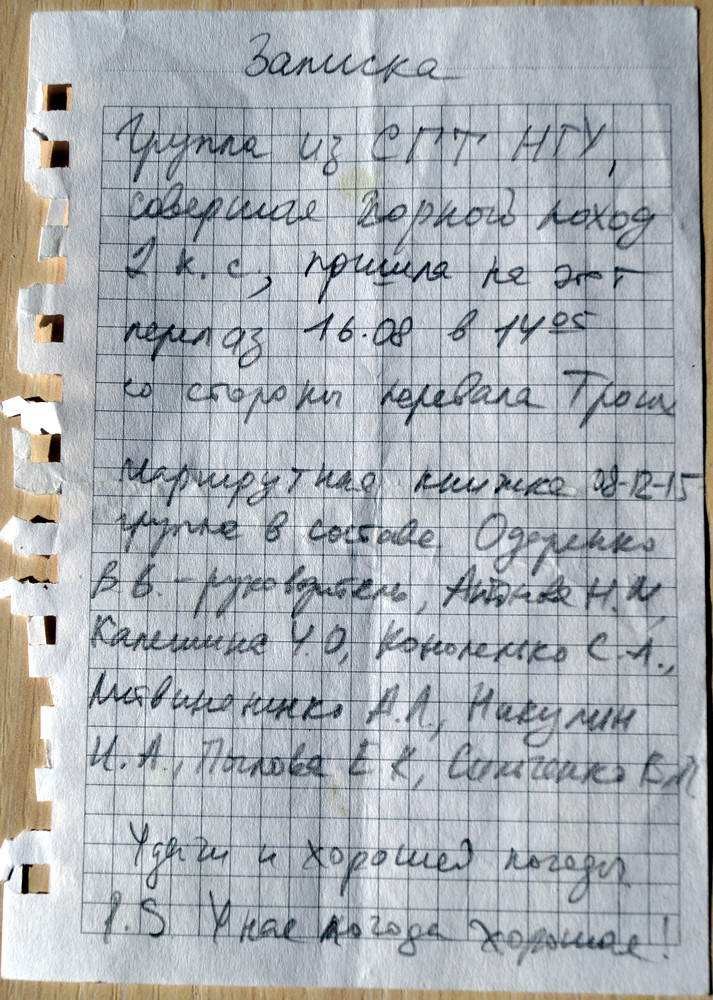 Записка
Группа из СПТ НГУ,
совершая горный поход
2 к.с., пришла на этот
перелаз 16.08 в 14 05
со стороны перевала Троих
маршрутная книжка 08-12-15
группа в составе Одеренко
В.В. - руководитель, Антонова Н.И,
Калешина Ч.О, Коноленко С.А.,
Литвиненко А.А., Никулин
И.А., Пылова Е К, Симченко В.М
Удачи и хорошей погоды
P.S У нас погода хорошая!